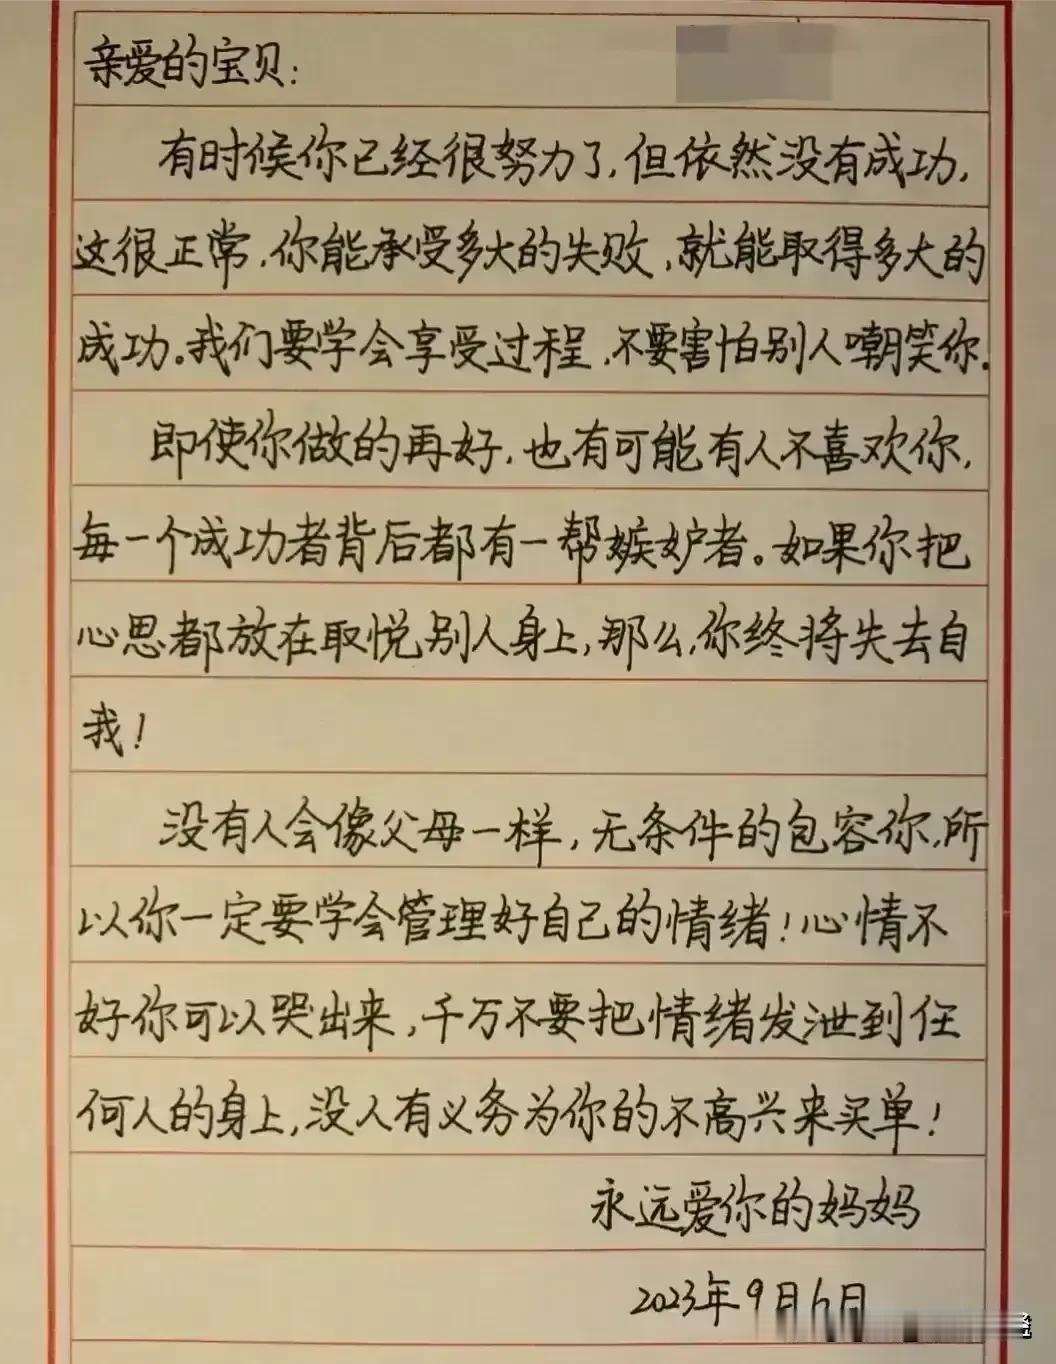 亲爱的宝贝：
有时候你已经很努力了，但依然没有成功，
这很正常，你能承受多大的失败，就能取得多大的
成功。我们要学会享受过程，不要害怕别人嘲笑你.
即使你做的再好，也有可能有人不喜欢你，
每一个成功者背后都有一帮嫉妒者。如果你把
心思都放在取悦别人身上，那么，你终将失去自
我！
没有人会像父母一样，无条件的包容你，所
以你一定要学会管理好自己的情绪！心情不
好你可以哭出来，千万不要把情绪发泄到任
何人的身上，没人有义务为你的不高兴来买单！
永远爱你的妈妈
2023年9月6日